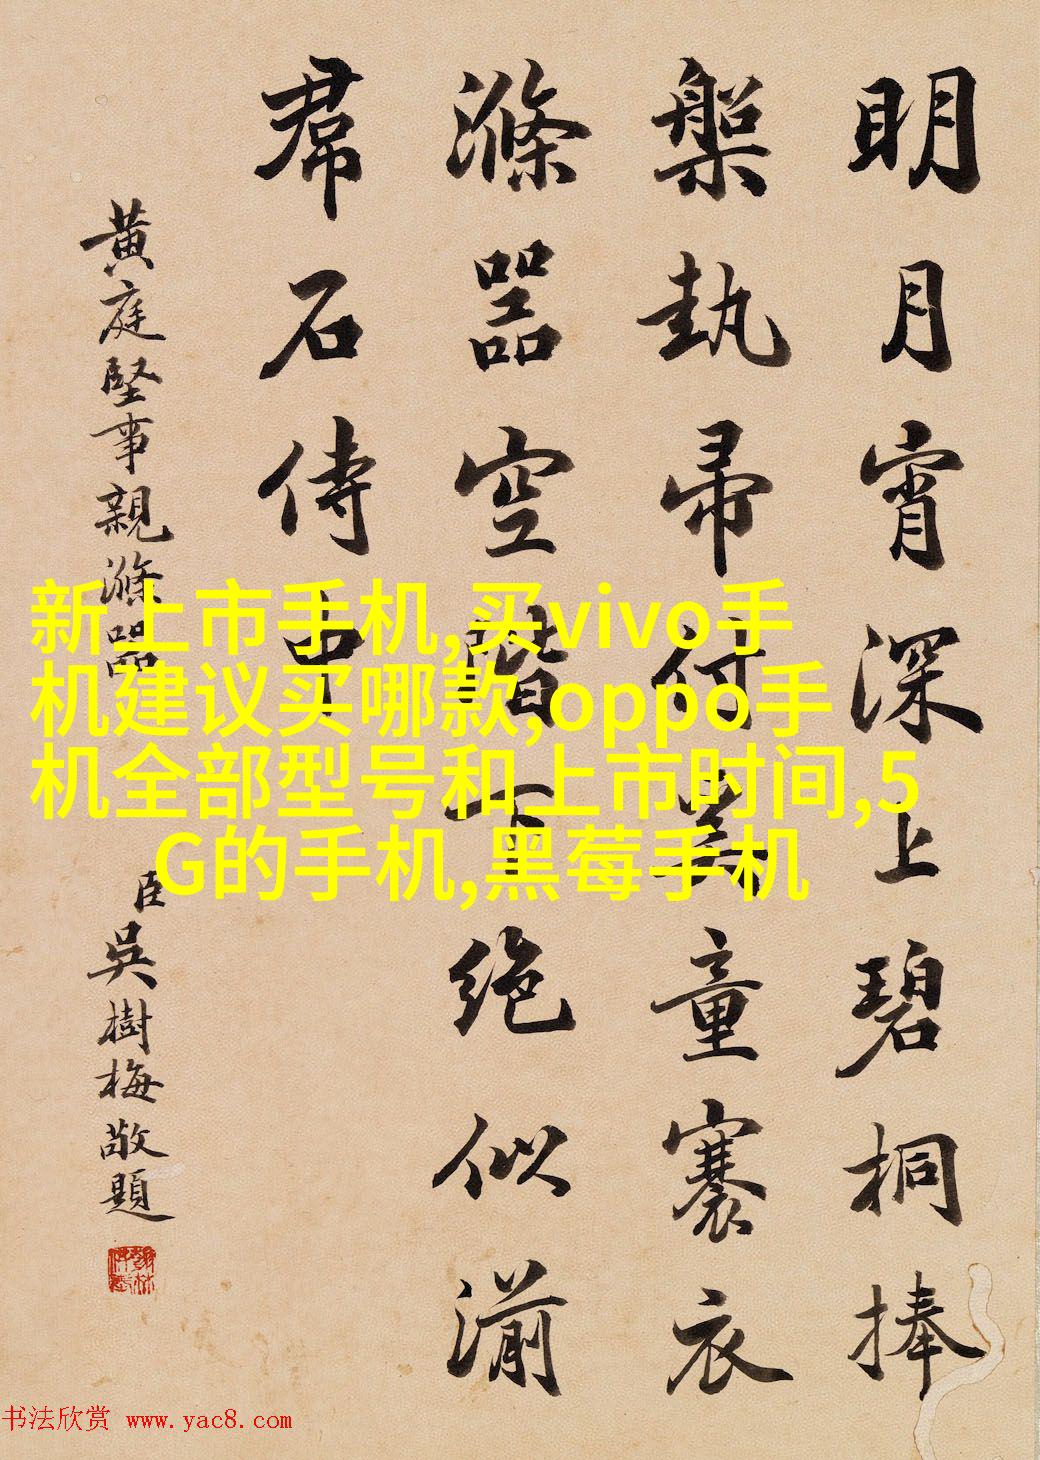 明月宵深上碧桐捧
槃執帚付奚童褰衣
滌器空階下絶似湔
帬石侍中
黃庭堅事親滌器
臣吳樹梅敬題
新上市手机,买vivo手
机建议买哪款,oppo手
机全部型号和上市时间,5
G的手机,黑莓手机
书法欣赏 www.yac8.com